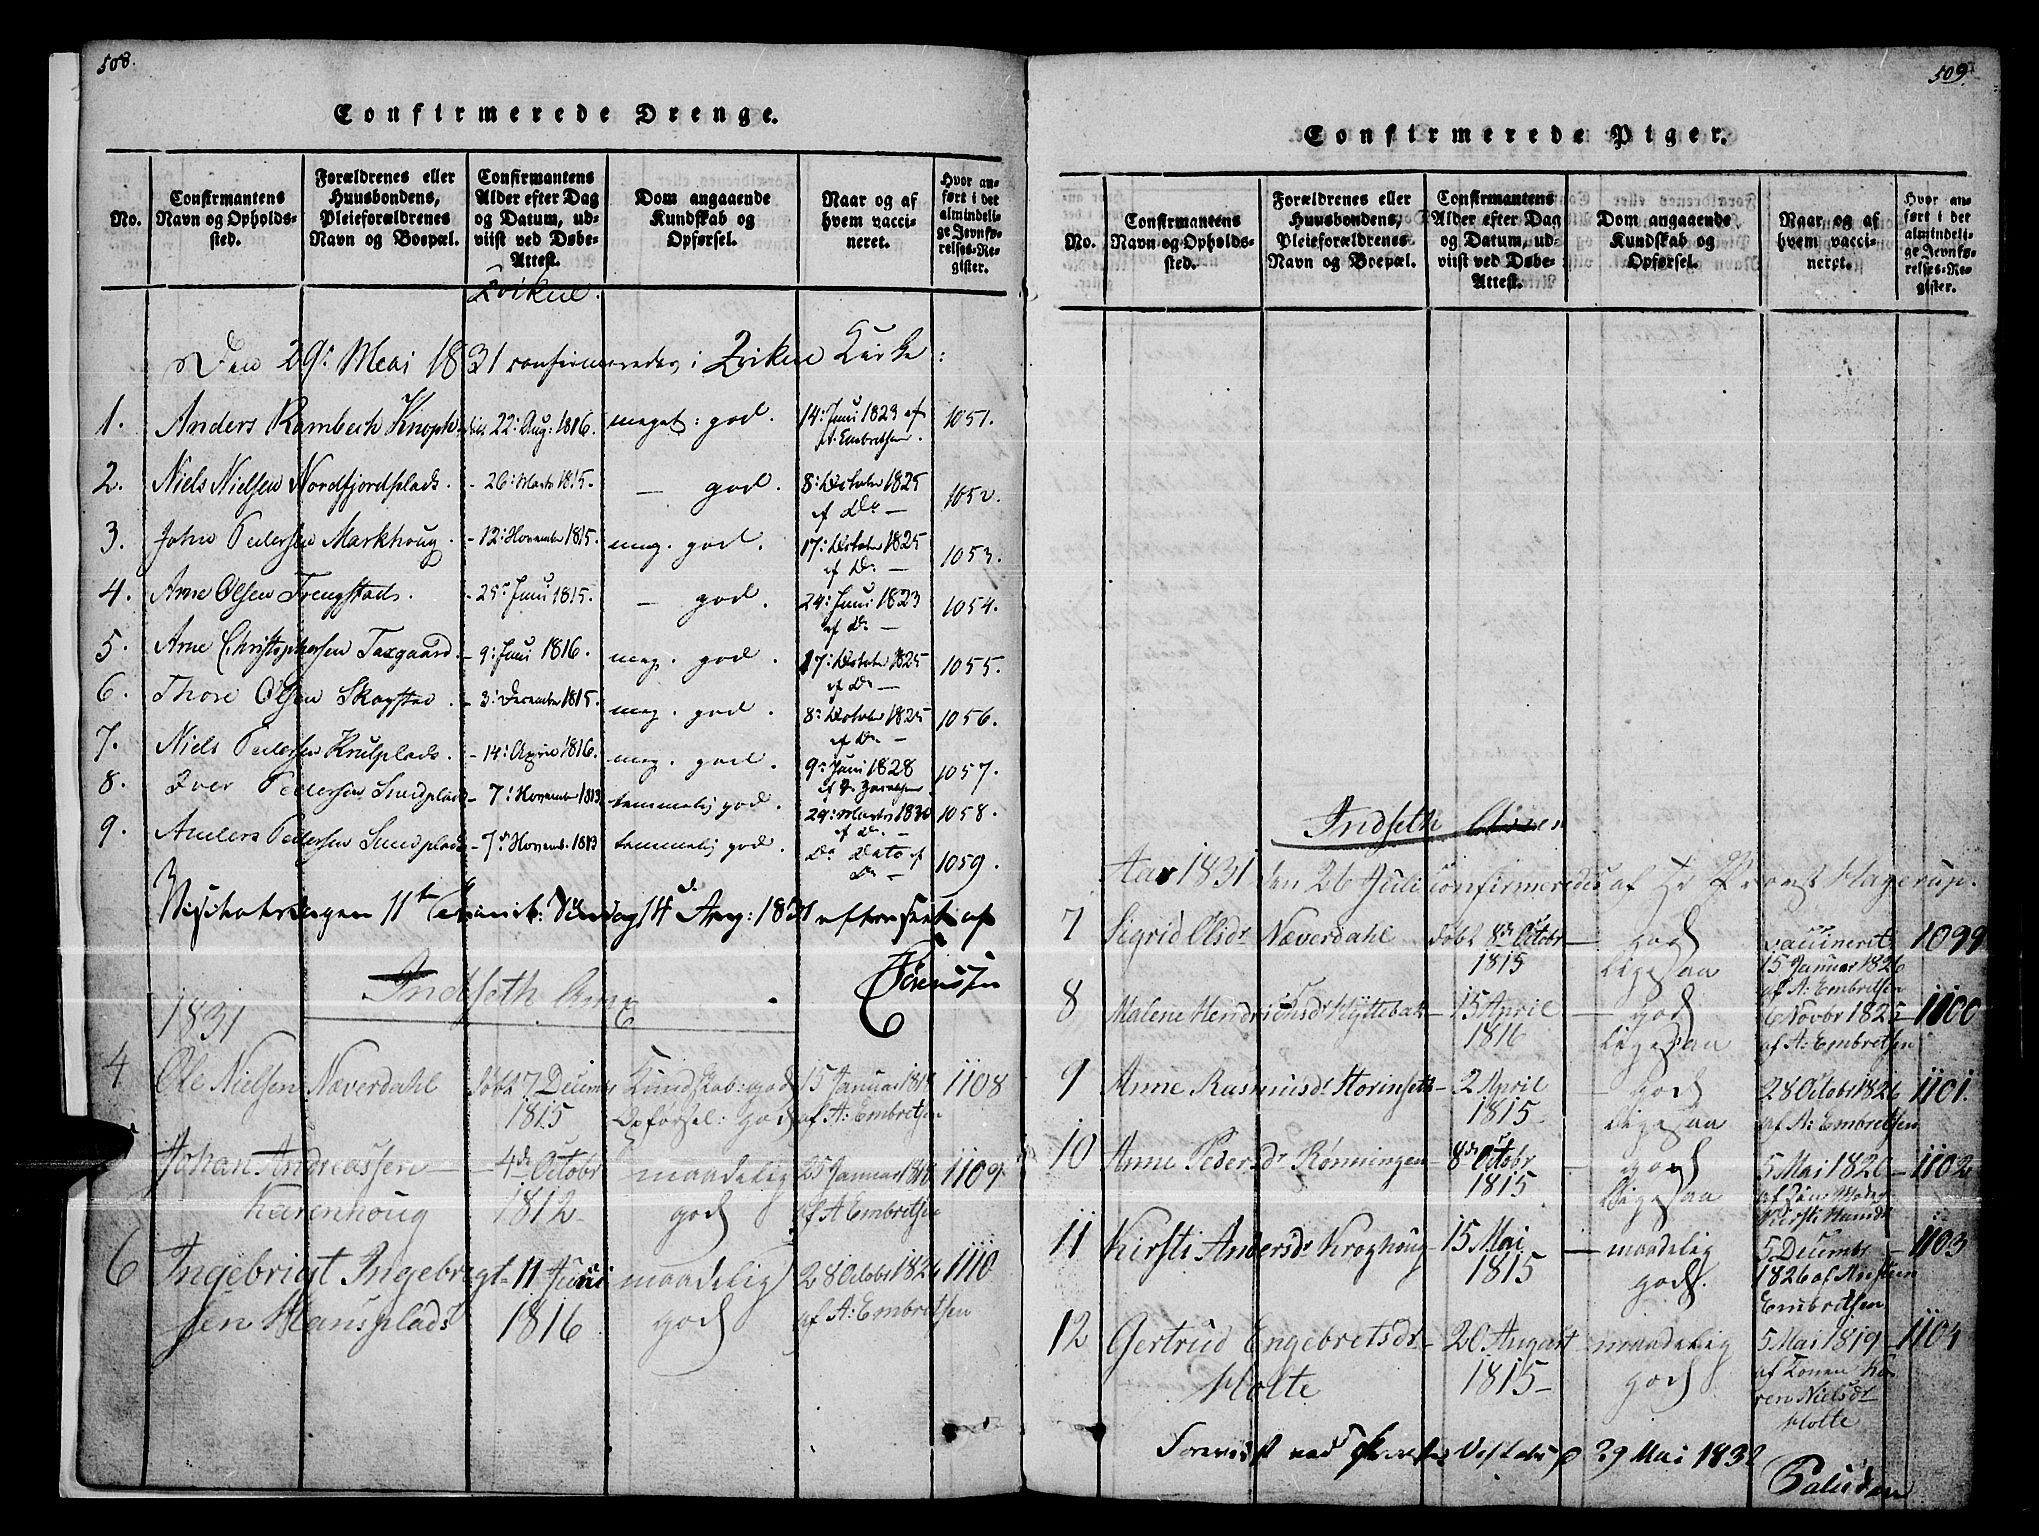 508.
Confirmerede Drenge.
No.
Confirmantens Navn og Opholds-sted.
Forældrenes eller Huusbondens, Pleieforældrenes Navn og Boepæl.
Confirmantens Alder efter Dag og Datum, ud-viist ved Døbe-Attest.
Dom angaaende Kundskab og Opførsel.
Naar og af hvem vacci-neret.
Hvor an-ført i det almindeli-ge Jevnfø-relses-Re-gister.
Qvikne.
Den 29: Mai 1831 confirmeredes i Qvikne Kirke:
1. Anders Rambech Knoph 22: Aug: 1816. meget: god. 14: Juni 1823 af A. Embretsen. 1051.
2. Niels Nielsen Nordfjordsplads. - 26: Marts 1815. — god. 8: October 1825 af Do — 1052.
3. John Pedersen Markhoug. - 12: November 1815. meg. god. 17: October 1825 af Do — 1053.
4. Arne Olsen Trengstad. - 25: Juni 1815. — god. 24: Juni 1823 af Do — 1054.
5. Arne Christophersen Taxgaard. - 9: Juni 1816. meg. god. 17: October 1825 af Do — 1055.
6. Thore Olsen Skogstad - 3: December 1815. meg. god. 8: October 1825 af Do — 1056.
7. Niels Pedersen - 14: April 1816. meg. god. 9: Juni 1828 af 1057.
8. Iver Pedersen Smedplads - 7: November 1813 temmelig god. 29: Marts 1830 af Do — 1058.
9. Anders Pedersen Smedplads - 7: Novemb. 1813 temmelig god. Do Dato af Do — 1059.
11te Trinit: Søndag 14 Aug: 1831 efterseet af
Sørenssen
Indseth Annex
1831
4 Ole Nielsen Næverdahl Døbt 17 Decembr 1815 Kundskab: god Opførsel: god 15 Januar af A: Embretsen 1108
Johan Andreassen Karenhoug - 4de Octobr 1812 - maadelig god 25 Januar 1818 af A Embretsen 1109
6 Ingebrigt Ingebrigt-sen Hansplads - 11 Juni 1816 maadelig god 28 Octobr 1826 af A: Embretsen 1110
509.
Confirmerede Piger.
No.
Confirmantens Navn og Opholds-sted.
Forældrenes eller Huusbondens, Pleieforældrenes Navn og Boepæl.
Confirmantens Alder efter Dag og Datum, ud-viist ved Døbe-Attest.
Dom angaaende Kundskab og Opførsel.
Naar og af hvem vacci-neret.
Hvor an-ført i det almindeli-ge Jevnfø-relses-Re-gister.
Indseth Annex
Aar 1831 den 26 Juli confirmeredes af Hr Provst Hagerup.
7 Sigrid Olsdr Næverdahl Døbt 8de Octobr 1815 — god ligesaa vaccineret 15 Januar 1826 af A: Embretsen 1099
8 Malene Hendrichsdr Hyttebak - 15 April 1816 — god ligesaa 6 Novbr 1825 af A: Embretsen 1100
9 Anne Rasmusdr Storinseth - 2 April 1815 — god ligesaa 28 Octobr 1826 af A: Embretsen 1101.
10 Anne Pedersdr Rønningen - 8de Octobr 1815 — god ligesaa 5 Mai 1820 af 1102
11 Kirsti Andersdr Kroghoug - 15 Mai 1815 — maadelig god. 5 Decembr 1826 af Embretsen 1103
12 Gertrud Engebretsdr Holte - 20 August 1815 - maadelig god 5 Mai 1819 af Konen Ka-ren Nielsdr Holte 1104
Foreviist ved 29 Mai 1832
Paludan